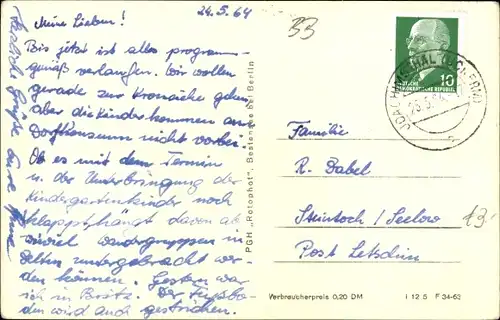 24.5.64
Meine Lieben!
Bis jetzt ist alles programm-
gemäß verlaufen. Wir wollen
gerade zur Kronäiche gehen,
aber die Kinder kommen am
Dorfkonsum nicht vorbei.
Ob es mit dem Termin
u. der Unterbringung der
Kindergartenkinder noch
klappt, hängt davon ab
wieviel wandergruppen in
Zelten untergebracht wer
den können. Gestern war
ich in Britz. Der Fußbo-
den wird auch gestrichen.
Herzliche Grüße Eure
PGH „Rotophot", Bestensee bei Berlin
33
DEUTSCHE
DEMOKRATISCHE REPUBLIK
10
JOACHIMSTHAL
Familie
R. Babel
Steintoch / Seelow
Post Letschin
13.-
Verbraucherpreis 0,20 DM
I 12 5 F 34-62